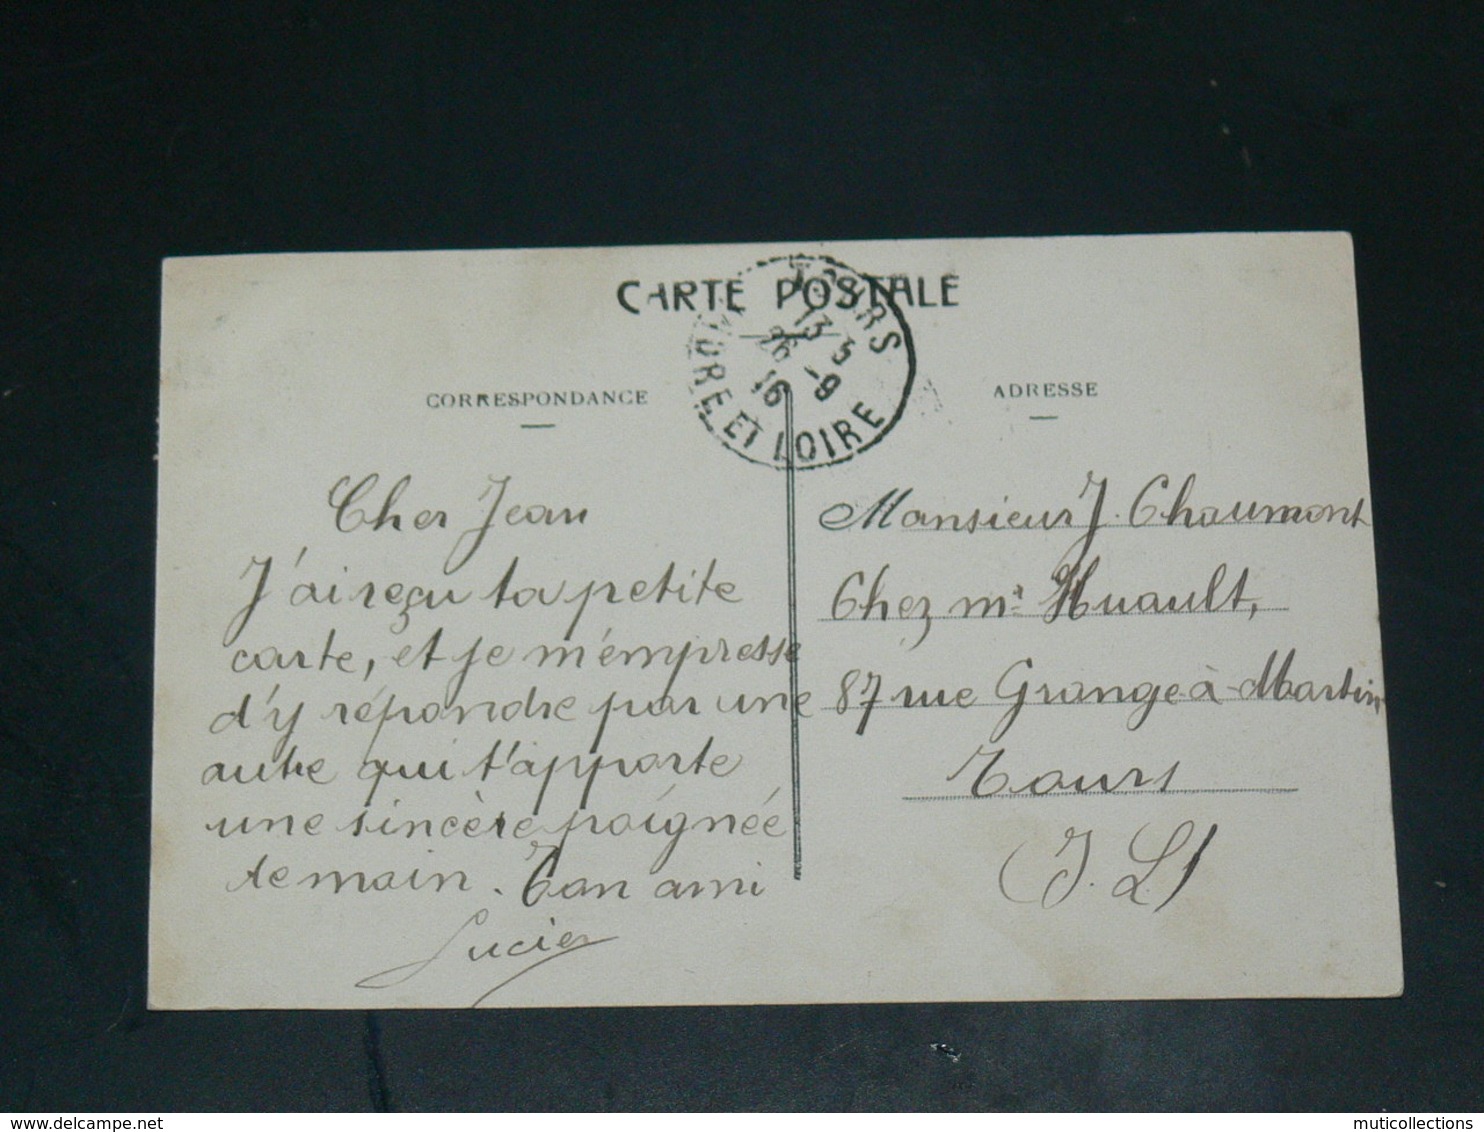 CARTE POSTALE
TOURS
13 5
26 -9
16
INDRE ET LOIRE
CORRESPONDANCE
ADRESSE
Cher Jean
J'ai reçu ta petite
carte, et je m'empresse
d'y répondre par une
autre qui t'apporte
une sincère poignée
de main. Ton ami
Lucien
Monsieur J. Chaumont
Chez mr Huault,
87 rue Grange-à-Martin
Tours
I. L
muticollections